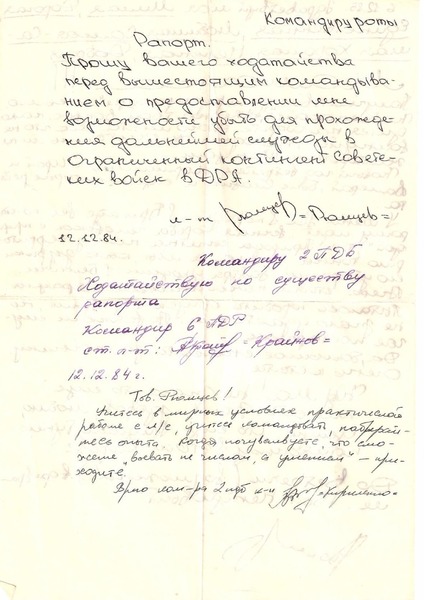 Командиру роты
Рапорт.
Прошу вашего ходатайства
перед вышестоящим командыва-
нием о предоставлении мне
возможности убыть для прохожде-
ния дальнейшей службы в
Ограниченный контингент Совет-
ких войск в ДРА.
л-т
12.12.84.
Командиру 2 ПДБ
Ходатайствую по существу
рапорта
Командир 6 ПДР
ст. л-т: = Крайнов =
12.12.84 г.
Тов.
Учитесь в мирных условиях практической
работе с л/с, учитесь командовать, набирай-
тесь опыта. Когда почувствуете, что смо-
жете "воевать не числом, а умением" - при-
ходите.
Врио ком-ра 2 пдб к-н